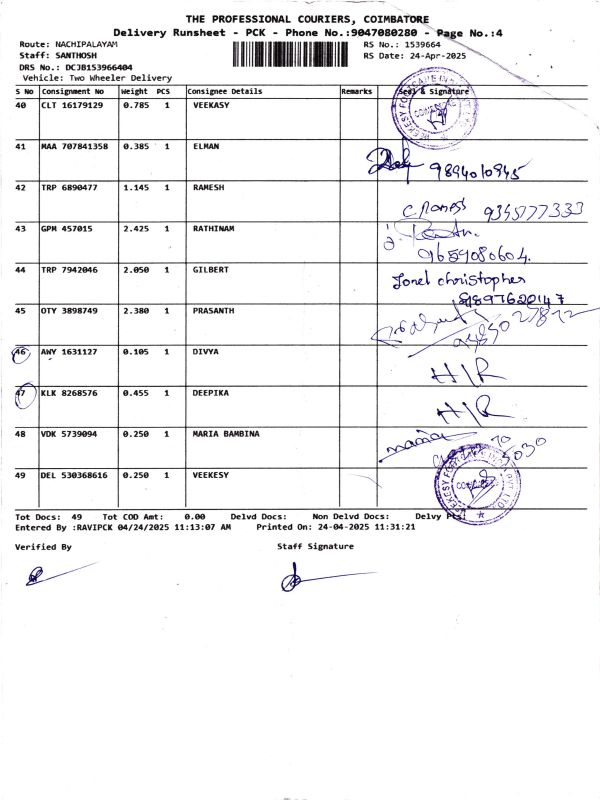 THE PROFESSIONAL COURIERS, COIMBATORE
Delivery Runsheet - PCK - Phone No.:9047080280 - Page No.:4
Route: NACHIPALAYAM RS No.: 1539664
Staff: SANTHOSH RS Date: 24-Apr-2025
DRS No.: DCJB153966404
Vehicle: Two Wheeler Delivery
S No Consignment No Weight PCS Consignee Details Remarks Seal & Signature
40 CLT 16179129 0.785 1 VEEKASY
41 MAA 707841358 0.385 1 ELMAN
9894010945
42 TRP 6890477 1.145 1 RAMESH
9345777333
43 GPM 457015 2.425 1 RATHINAM
9659080604.
44 TRP 7942046 2.050 1 GILBERT
Jonel christopher
81897620147
45 OTY 3898749 2.380 1 PRASANTH
46 AWY 1631127 0.105 1 DIVYA
H/R
47 KLK 8268576 0.455 1 DEEPIKA
H/R
48 VDK 5739094 0.250 1 MARIA BAMBINA
maria
49 DEL 530368616 0.250 1 VEEKESY
Tot Docs: 49 Tot COD Amt: 0.00 Delvd Docs: Non Delvd Docs: Delvy Pts:
Entered By :RAVIPCK 04/24/2025 11:13:07 AM Printed On: 24-04-2025 11:31:21
Verified By Staff Signature